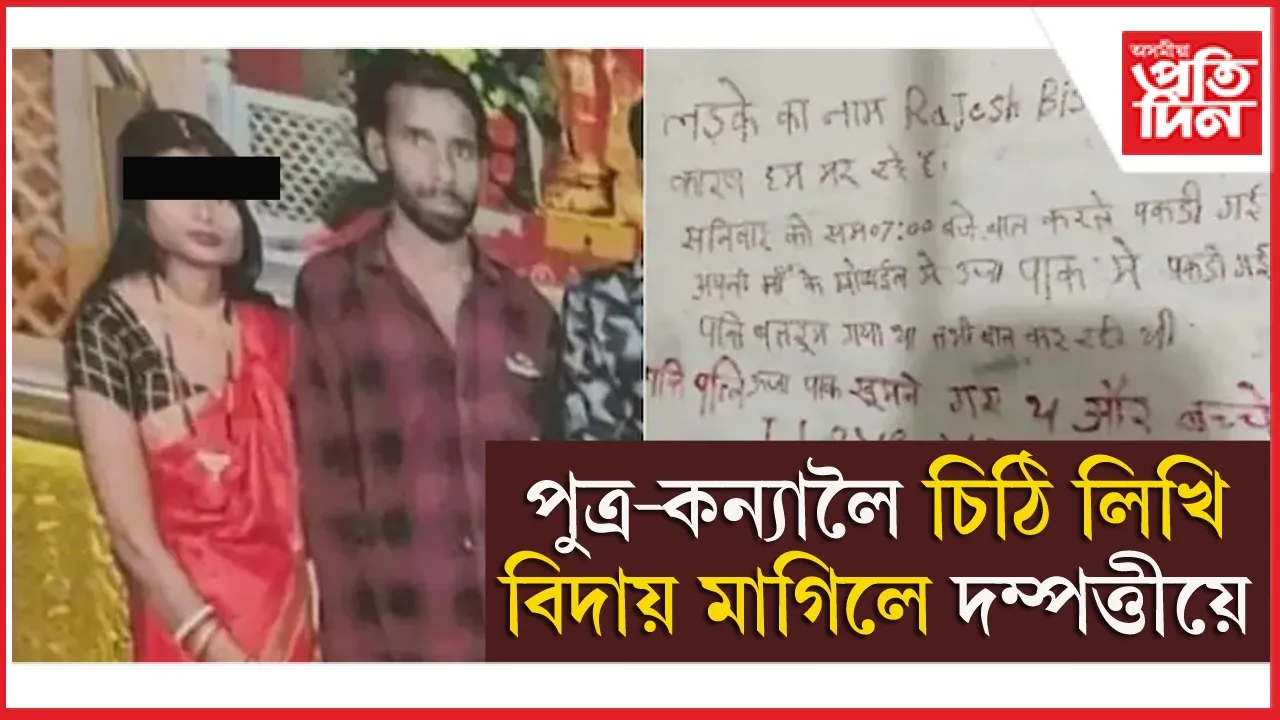 অসমীয়া
প্ৰতি
দিন
लड़के का नाम Rajesh Bis
कारण हम मर रहे है.
सनिवार को सम07:00 बजे बात करते पकडी गई
अपनी माँ के मोबाईल से उजा पाक मे पकडी गई
पति बातरूम गया था तभी बात कर रही थी
पति पत्नि उजा पाक घूमने गए थ और बच्चे
পুত্ৰ-কন্যালৈ চিঠি লিখি
বিদায় মাগিলে দম্পত্তীয়ে